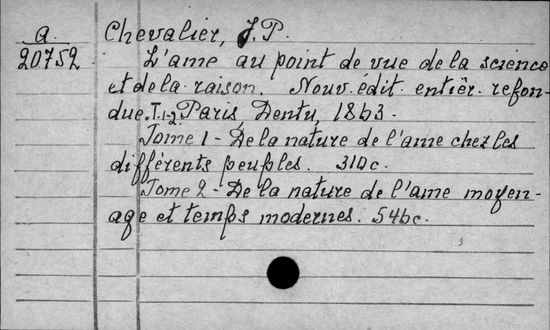 a. Chevalier, J.P.
20752. L'ame au point de vue de la science
et de la raison. Nouv. édit. entièr. refon-
due. T.1-2. Paris, Dentu, 1863.
Tome 1 - De la nature de l'ame chez les
différents peuples. 310c.
Tome 2 - De la nature de l'ame moyen-
age et temps modernes. 546c.